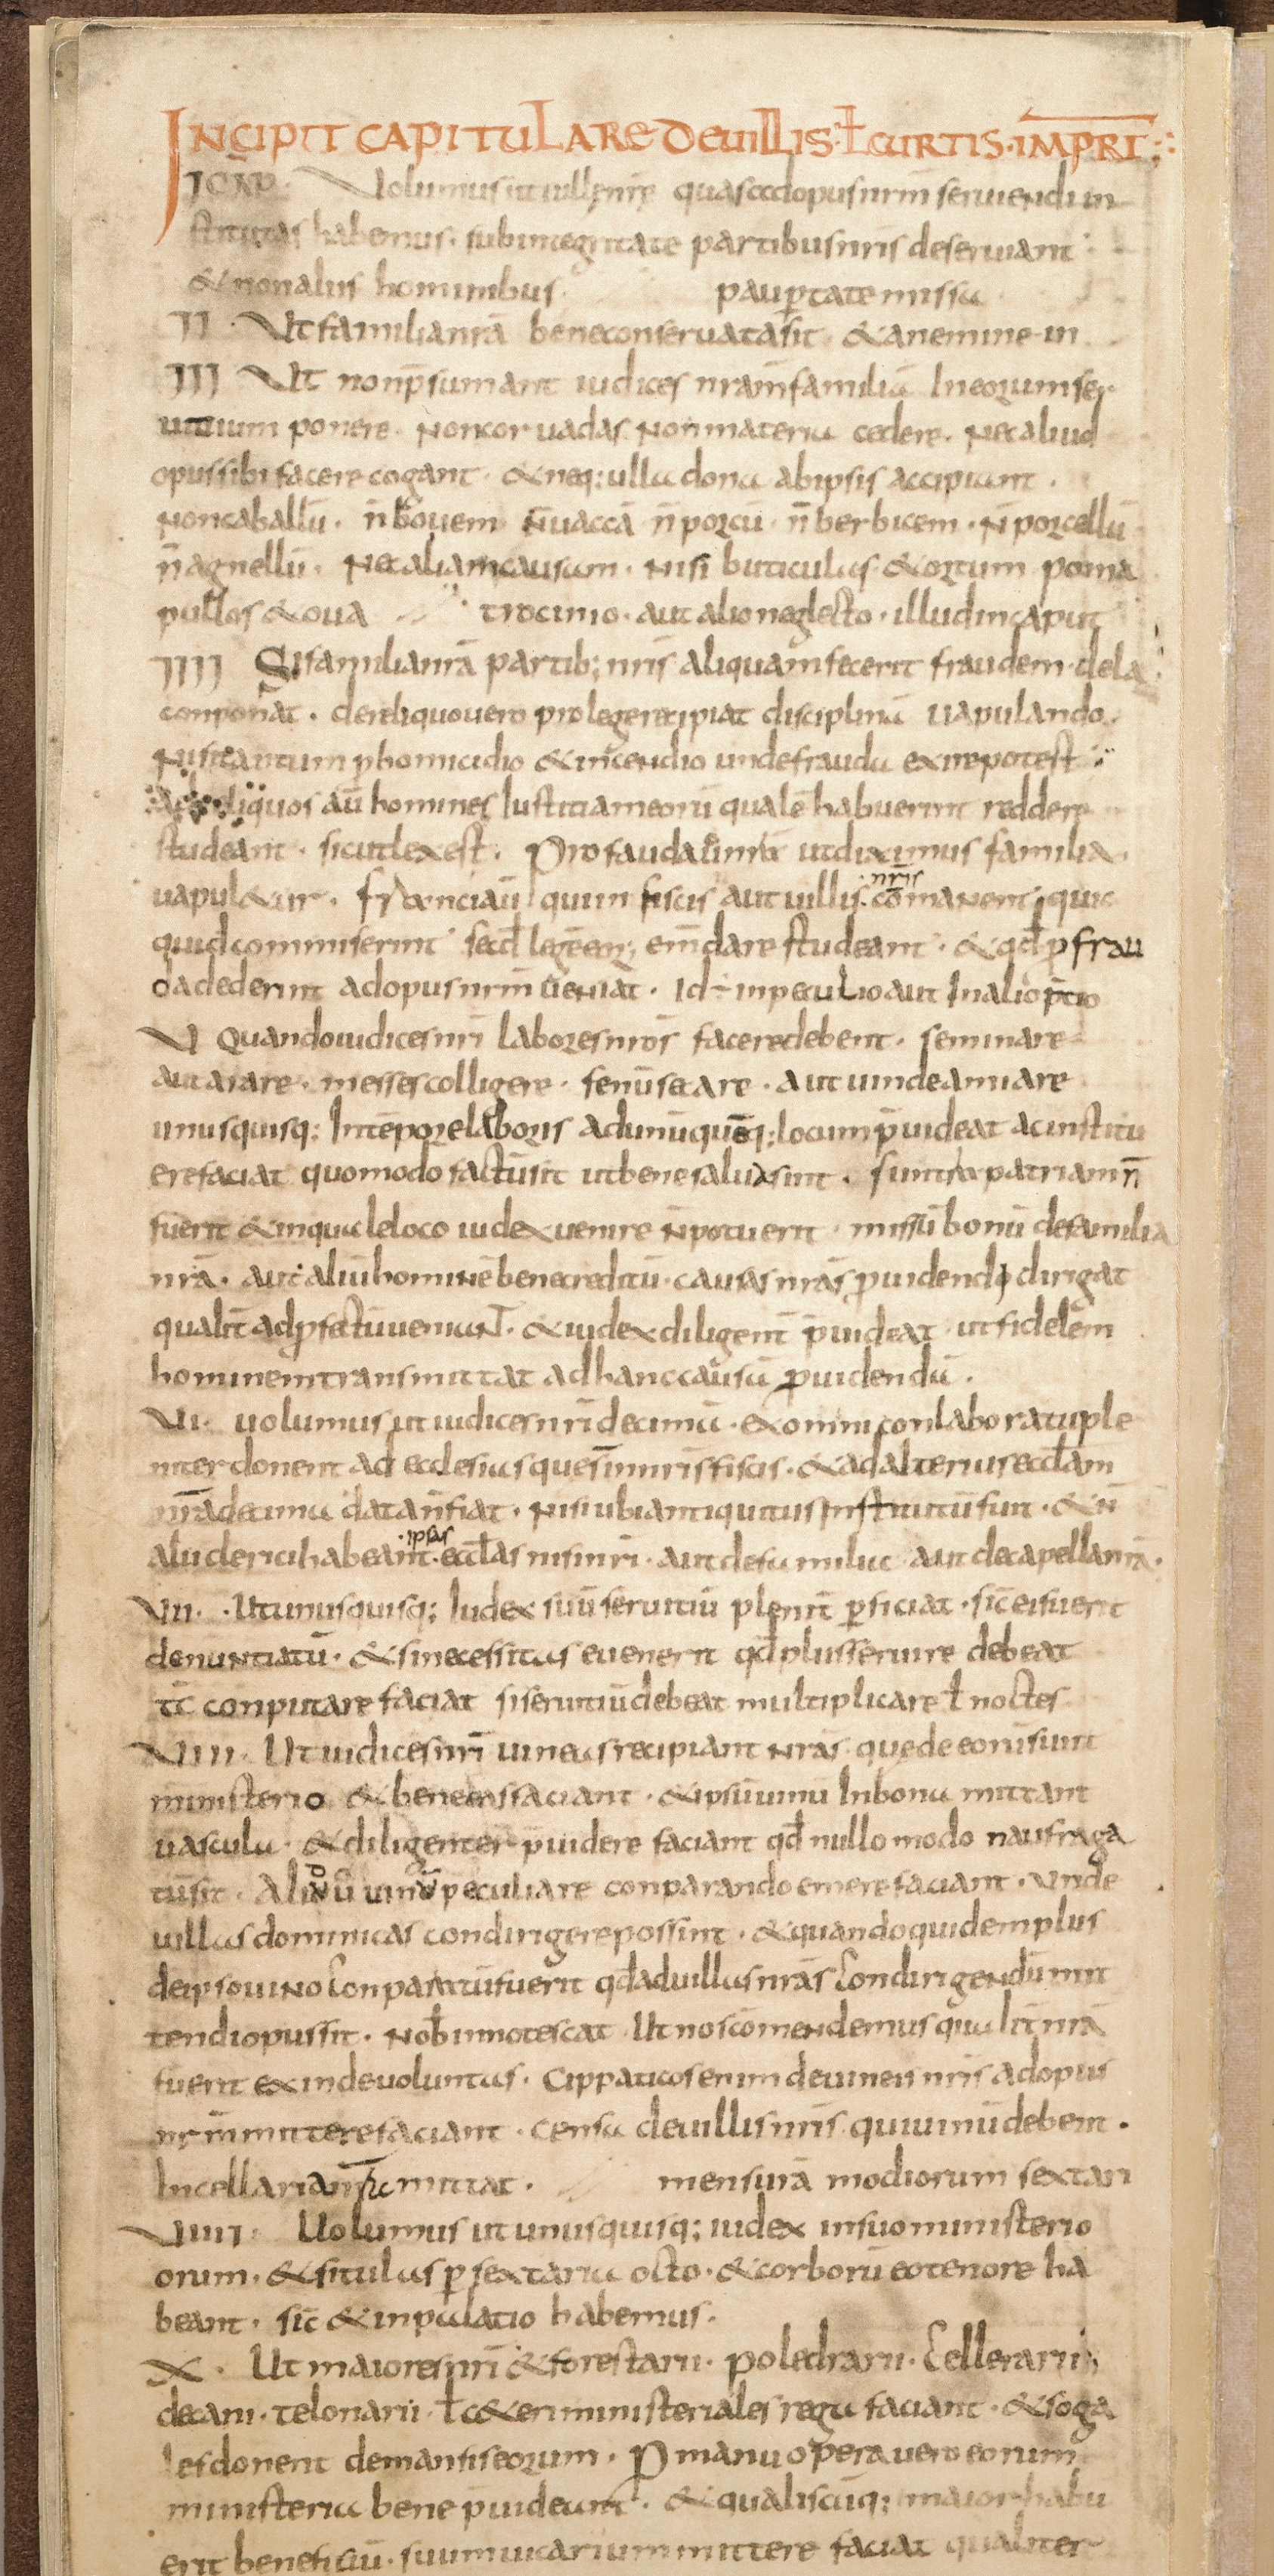 INCIPIT CAPITULARE DE UILLIS ł CURTIS IMPRI
Uolumus ut uillę nrę quas ad opus nrm seruiendi in
stitutas habemus. sub integritate partibus nris deseruiant
& non aliis hominibus paup̄tate missa
II. Ut familia nrā bene conseruata sit & a nemine in
III Ut non p̄sumant iudices nram familiā In eorum ser
uitium ponere Non coruadas Non materia cedere. Nec aliud
opus sibi facere cogant. & neq; ulla dona ab ipsis accipiant.
Non caballū. n̄ bouem n̄ uaccā n̄ porcū n̄ berbicem. N̄ porcellū
n̄ agnellū. Nec aliam causam. Nisi buticulas & ortum poma
pullos & oua trocinio. aut alio neglecto. illud in caput
IIII Si familia nrā partib; nris aliquam fecerit fraudem de la
conponat. de reliquo uero pro lege recipiat disciplinā uapulando
Nisi tantum p homicidio & incendio unde frauda exire potest
ad reliquos aū homines Iustitiam eorū qualē habuerint reddere
studeant. sicut lex est. Pro fauda nr̄a ut diximus familia
uapul&ur. franci aū qui in fiscis aut uillis nrīs comanent quic
quid commiserint secd̄ legēeor̄ em̄dare studeant. & qd̄ p frau
da dederint ad opus nrm̄ ueniat. Id ÷ in peculio aut In alio p̄tio
U Quando iudices nri labores nrōs facere debent. seminare
aut arare. messes colligere. fenū secare. aut uindeamiare
unusquisq; In tēpore laboris ad unūquēq; locum p̄uideat ac institu
ere faciat quomodo factū sit ut bene salua sint. si intra patriam n̄
fuerit & in quale loco iudex uenire n̄ potuerit missū bonū de familia
nrā. aut aliū hominē bene creditū causas nrās p̄uidendi dirigat
qualit̄ ad p̄fectū ueniaNT. & iudex diligent̄ p̄uideat ut fidelem
hominem transmittat ad hanc causā p̄uidendā.
UI. uolumus ut iudices nri decimā. ex omni conlaboratu ple
niter donent ad ecclesias quę sn̄ in nris fiscis. & ad alterius eccłam
nrā decima data n̄ fiat. Nisi ubi antiquitus Institutū fuit. & n̄
alii clerici habeant ipsas eccłas nisi nri. aut de familia aut de capella nrā.
UII. Ut unusquisq; Iudex suū seruitiū plenit̄ p̄ficiat. sic̄ ei fuerit
denuntiatū. & si necessitas euenerit qd̄ plus seruire debeat
tc̄ conputare faciat si seruitiū debeat multiplicare ł noctes
UIII. Ut iudices nrī uineas recipiant Nrās quę de eorū sunt
ministerio & bene eas faciant. & ipsū uinū In bona mittant
uascula. & diligenter p̄uidere faciant qd̄ nullo modo naufraga
tū sit. Aliud ū uinū peculiare conparando emere faciant. Unde
uillas dominicas condirigere possint. & quandoquidem plus
de ipso uino Conparatū fuerit qd̄ ad uillas nrās Condirigendū mit
tendi opus sit. Nob̄ innotescat Ut nos cōmendemus qualit̄ nrā
fuerit exinde uoluntas. Cippaticos enim de uineis nris ad opus
nrm̄ mittere faciant. Censa de uillis nris qui uinū debent.
In cellaria nrā mittat. mensurā modiorum sextari
UIIII. Uolumus ut unusquisq; iudex in suo ministerio
orum. & situlas p sextaria octo. & corborū eo tenore ha
beant. sic̄ & in palatio habemus.
X. Ut maiores nrī & forestarii. poledrarii. Cellerarii
decani. telonarii ł c&eri ministeriales rega faciant. & soga
les donent de mansis eorum. P manuopera uero eorum
ministeria bene p̄uideant. & qualiscūq; maior habu
erit beneficiū. suum uicarium mittere faciat qualiter